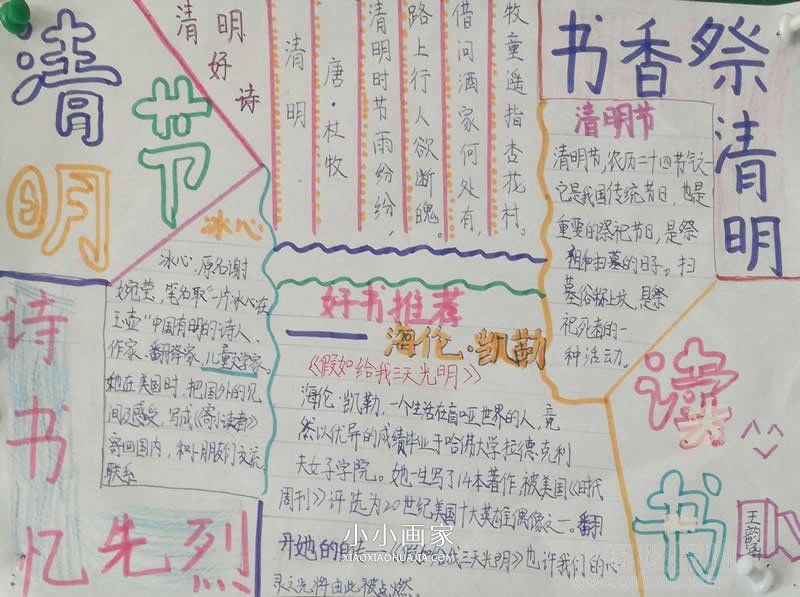 清明节
清明
好
诗
清明
唐·杜牧
清明时节雨纷纷，
路上行人欲断魂。
借问酒家何处有，
牧童遥指杏花村。
书香祭
清明
清明节
清明节，农历二十四节气一
它是我国传统节日，也是
重要的祭祀节日，是祭
祖和扫墓的日子。扫
墓俗称上坟，是祭
祀死者的一
种活动。
冰心
冰心，原名谢
婉莹，笔名取"一片冰心在
玉壶"中国有明的诗人、
作家、翻译家、儿童文学家。
她在美国时，把国外的见
闻及感受，写成《寄小读者》
寄回国内，和小朋友们交流
联系
好书推荐
海伦·凯勒
《假如给我三天光明》
海伦·凯勒，一个生活在盲哑世界的人，竟
然以优异的成绩毕业于哈佛大学拉德克利
夫女子学院。她一生写了14本著作，被美国《时代
周刊》评选为20世纪美国十大英雄偶像之一。翻
开她的自传—《假如给我三天光明》也许我们的心
灵之光将由此被点燃。
诗书
忆先烈
读书
小小画家
XIAOXIAOHUAJIA.COM